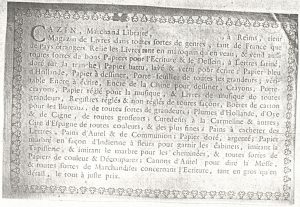 CAZIN, Marchand Libraire, à Reims, tient
Magasin de Livres dans toutes sortes de genres, tant de France que
de Pays étrangers. Relie les Livres tant en maroquin qu'en veau, & vend aussi
toutes sortes de bons Papiers pour l'Ecriture & le Dessein, à Lettres, lainé,
doré sur la tranche, Papier battu, lavé & verni pour écrire, Papier bleu
d'Hollande, Papier à dessiner, Porte-feuilles de toutes les grandeurs,
à écrire, Encre de la Chine pour dessiner, Crayons, Porte-
crayons, Papier réglé pour la musique, & Livres de musique de toutes
grandeurs, Registres réglés & non réglés de toutes façons, Boëtes de carton
pour les Bureaux, de toutes sortes de grandeurs; Plumes d'Hollande, d'Oye
& de Cigne, de toutes grosseurs; Curedents à la Carmeline & autres;
Cire d'Espagne de toutes couleurs, & des plus fines; Pains à cacheter des
Lettres, Pains d'Autel & de Communion; Papier doré, argenté; Papier
marbré en façon d'Indienne à fleurs pour garnir les cabinets, imitant la
Tapisserie, & imitant le marbre pour les cheminées, & toutes sortes de
Papiers de couleur & Découpures; Canons d'Autel pour dire la Messe,
& toutes sortes de Marchandises concernant l'Ecriture, tant en gros qu'en
détail, le tout à juste prix.